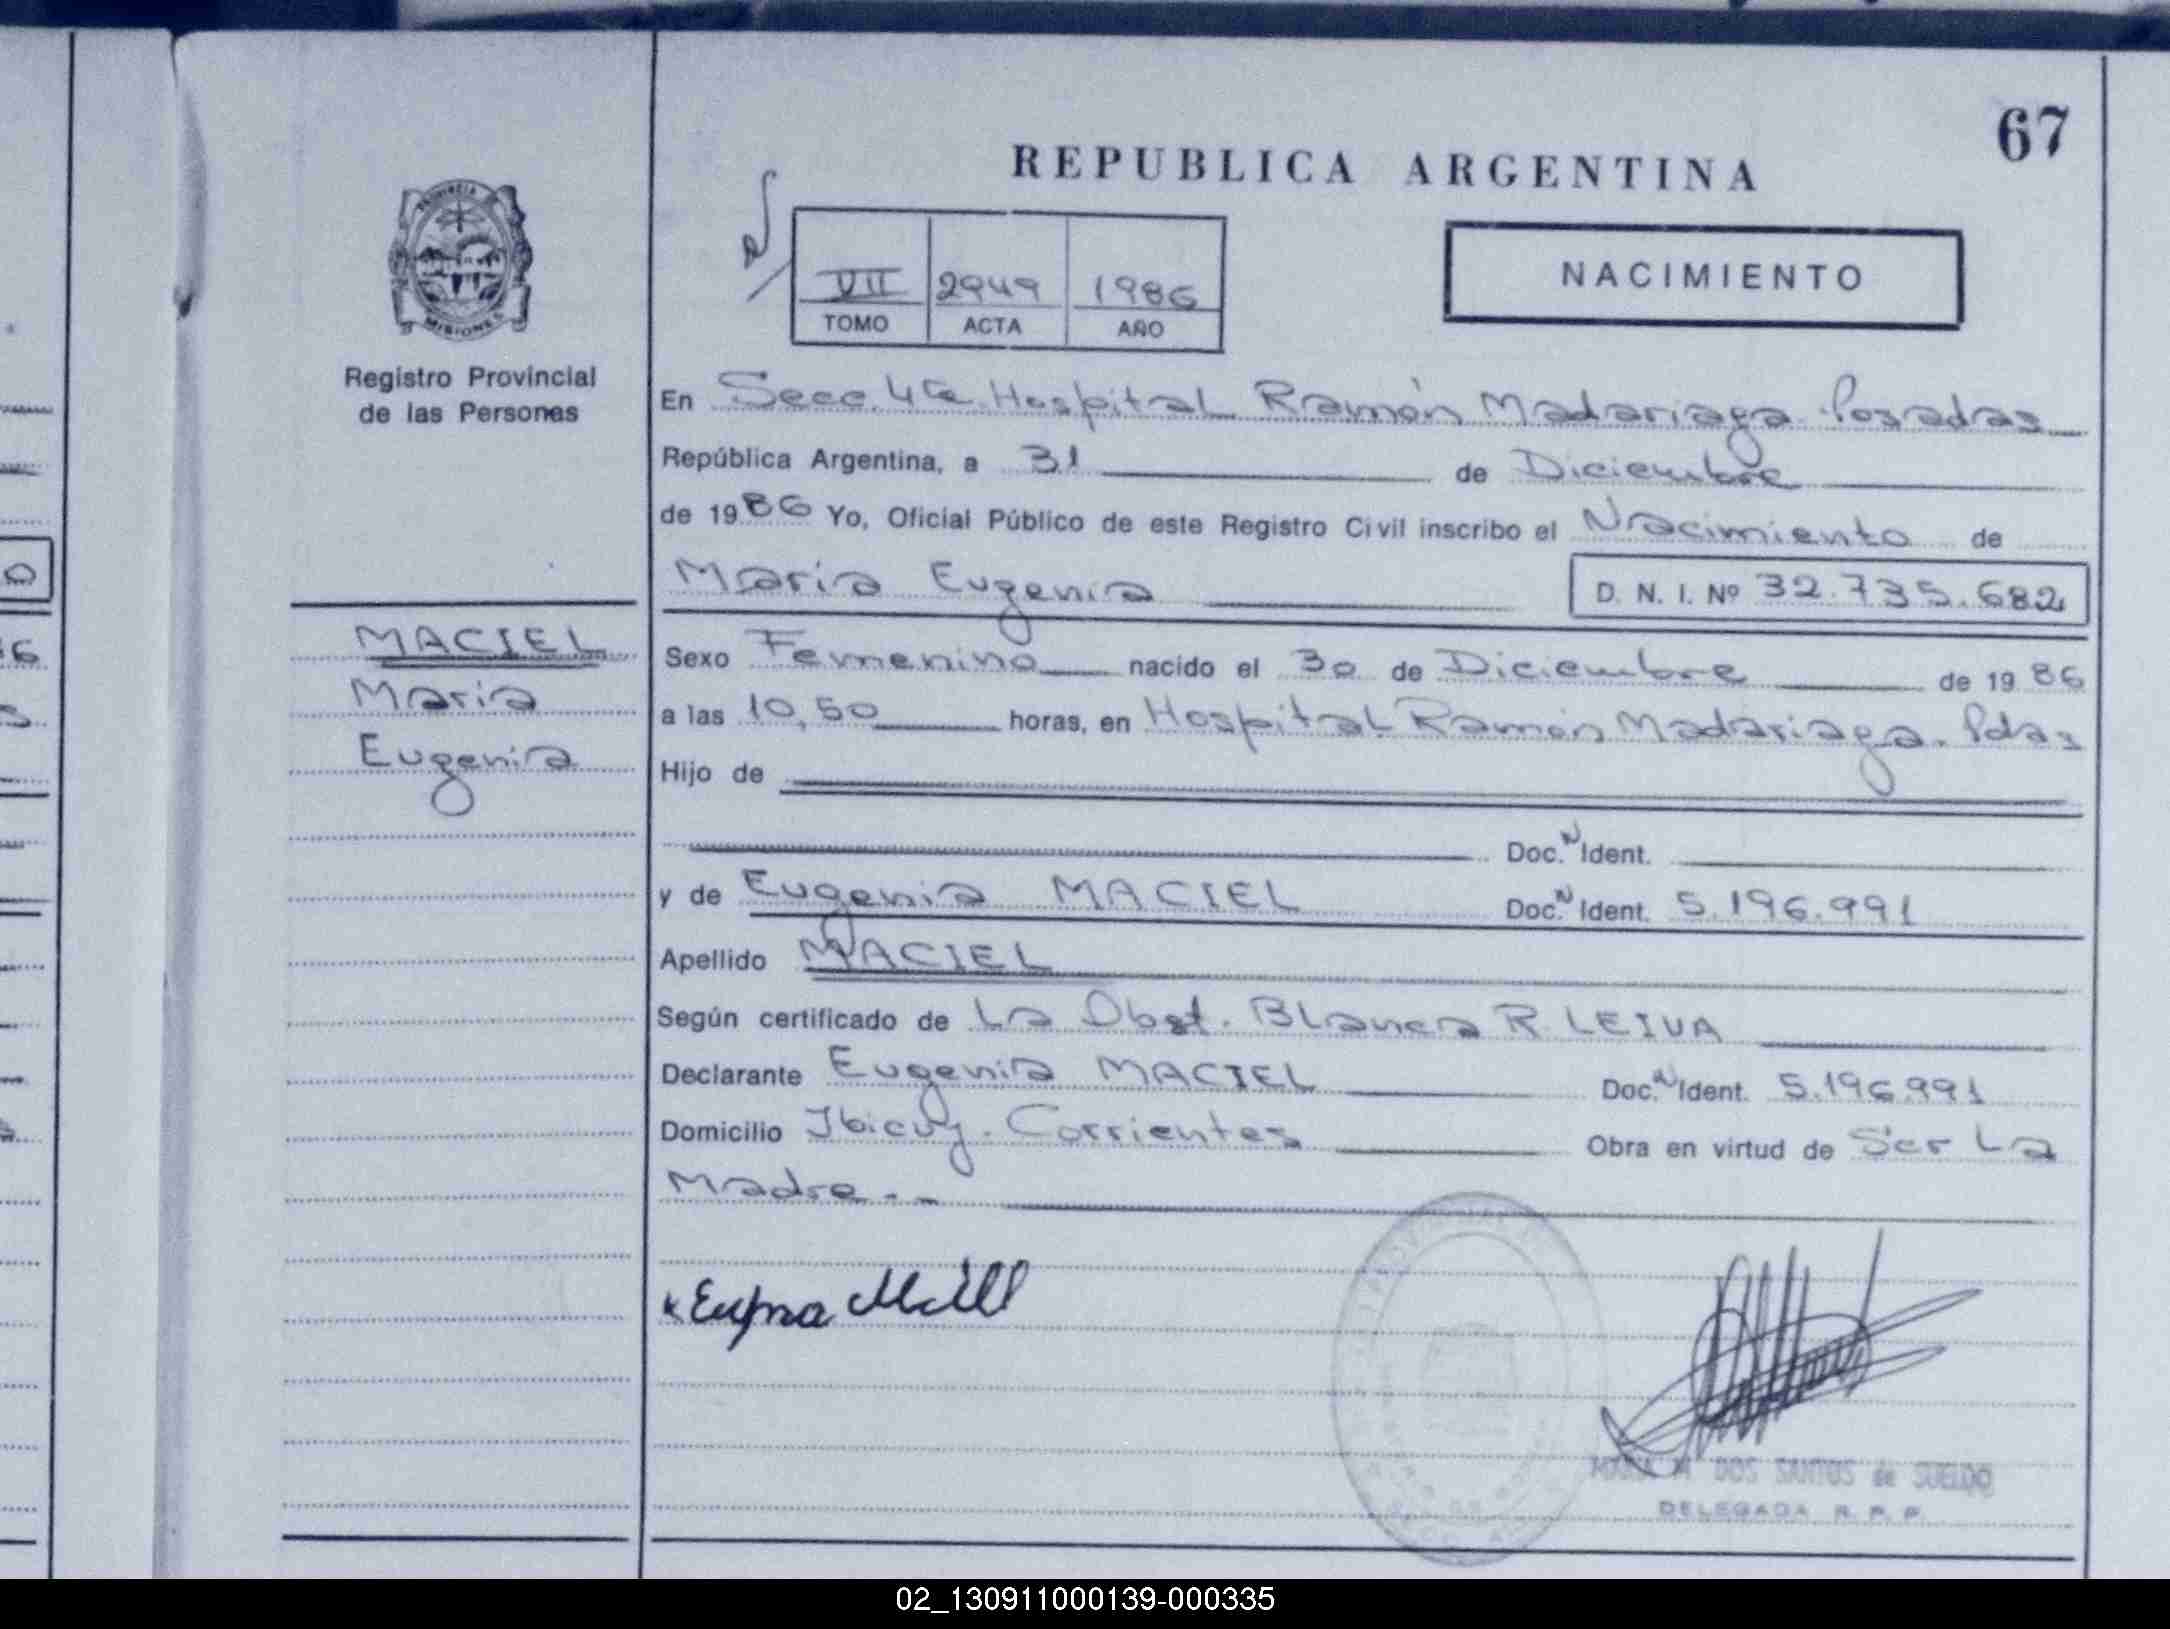 67
REPUBLICA ARGENTINA
PROVINCIA
MISIONES
Registro Provincial
de las Personas
VII 2949 1986
TOMO ACTA AÑO
NACIMIENTO
En Secc. 4ta. Hospital Ramón Madariaga. Posadas
República Argentina, a 31 de Diciembre
de 1986 Yo, Oficial Público de este Registro Civil inscribo el Nacimiento de
Maria Eugenia D. N. I. Nº 32.735.682
MACIEL
Maria
Eugenia
Sexo Femenino nacido el 30 de Diciembre de 1986
a las 10,50 horas, en Hospital Ramón Madariaga. Pdas
Hijo de
Doc. N Ident.
y de Eugenia MACIEL Doc. N Ident. 5.196.991
Apellido MACIEL
Según certificado de La Obst. Blanca R. LEIVA
Declarante Eugenia MACIEL Doc. N Ident. 5.196.991
Domicilio Ibicuy. Corrientes Obra en virtud de Ser La
Madre. -
MARIA M DOS SANTOS de SUELDO
DELEGADA R. P. P.
02_130911000139-000335